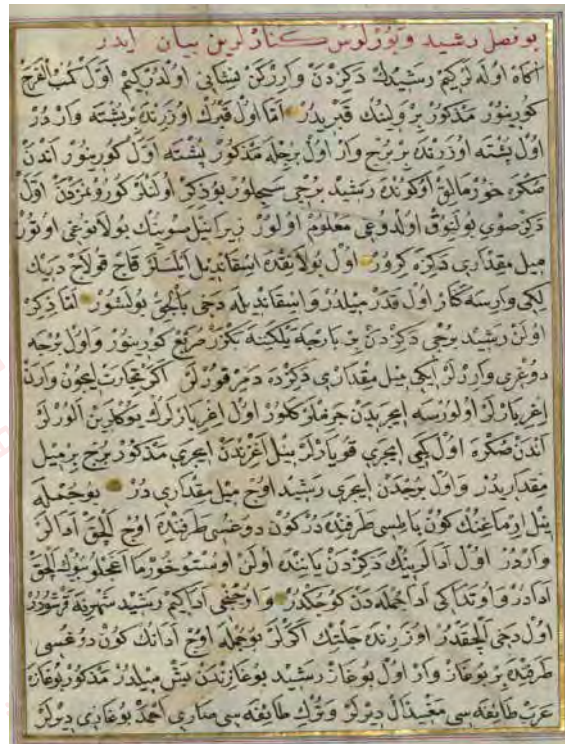 بو فصل رشيد و بورلوس كنارلرين بيان ايدر
آكاه اوله لركيم رشيدك دكزدن وارركن نشانى اولدركيم اول كتب الفرح
كورينور مذكور بر ولينك قبريدر اما اول قبرك اوزرنده بر پشته واردر
اول پشته اوزرنده بر برج وار اول برجله مذكور پشته اول كورينور اندن
صكره خورمالق اوكونده رشيد برجى سچيلور بو ذكر اولنلر كورونمزدن اول
دكز صوى بولنوق اولدوغى معلوم اولور زيرا نيل صوينك بولانوغى اوتوز
ميل مقدارى دكزه كرور اول بولانقده اسقانديل اتسلر قاچ قولاج ديبك
كبى وارسه كنار اول قدر ميلدر و اسقانديله دخى بالجق بولشور اما ذكر
اولن رشيد برجى دكزدن بر پارچه يلكنه بكزر مربع كورينور و اول برجه
دوغرى وارلر ايكى ميل مقدارى دكزده دمر قورلر اكر تجارت ايچون وارن
اغر بارلر اولورسه ايچريدن جرملر كلور اول اغر بارلرك يوكلرين الورلر
اندن صكره اول كمى ايچرى قويارلر نيل اغزندن ايچرى مذكور برج بر ميل
مقداريدر و اول برجدن ايچرى رشيد اوچ ميل مقدارى در بو جمله
نيل ارماغنك كون باتيسى طرفنده در كون دوغسى طرفنده اوچ الچق ادالر
واردر اول ادالرينك دكزدن ياننده اولن اوستو خورما اغاجلو بيوك الچق
ادادر و اورتداكى ادا جمله دن كوچكدر و اوچنجى اداكيم رشيد شهرينه قرشودر
اول دخى الچقدر اوزرنده چلتك اكرلر بو جمله اوچ ادانك كون دوغسى
طرفنده بر بوغاز وار اول بوغاز رشيد بوغازندن بش ميلدر مذكور بوغازه
عرب طايفه سى معيدال ديرلر و ترك طايفه سى صارى احمد بوغازى ديرلر